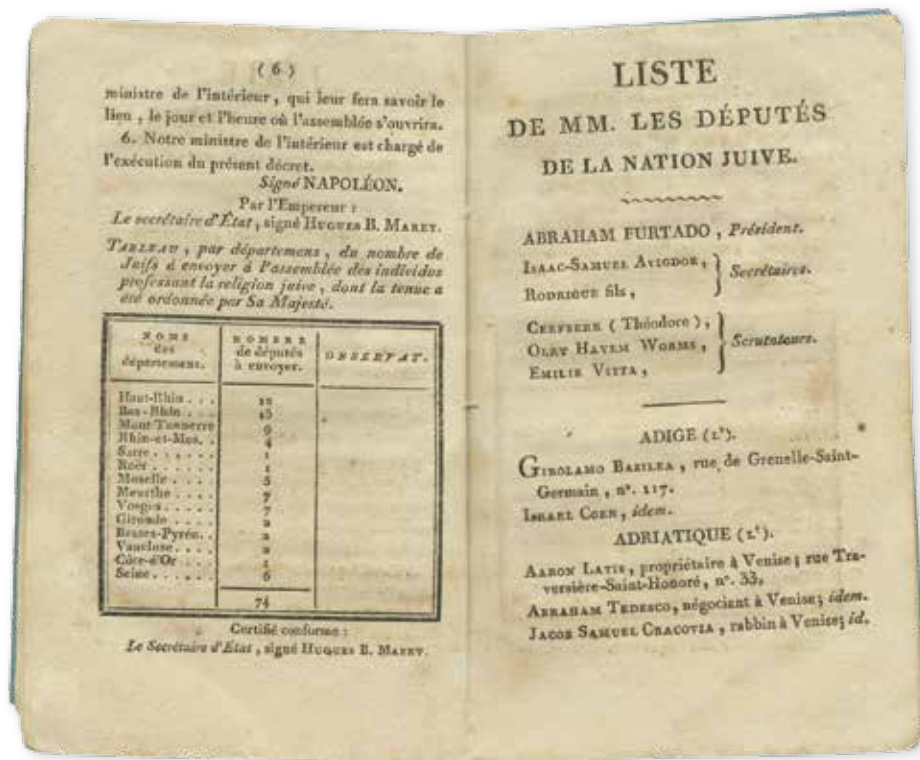 ( 6 )
ministre de l'intérieur, qui leur fera savoir le
lieu, le jour et l'heure où l'assemblée s'ouvrira.
6. Notre ministre de l'intérieur est chargé de
l'exécution du présent décret.
Signé NAPOLÉON.
Par l'Empereur :
Le secrétaire d'État, signé HUGUES B. MARET.
TABLEAU, par départemens, du nombre de
Juifs à envoyer à l'assemblée des individus
professant la religion juive, dont la tenue a
été ordonnée par Sa Majesté.
NOMS
des
départemens.
NOMBRE
de députés
à envoyer.
OBSERVAT.
Haut-Rhin . . . 12
Bas-Rhin . . . 15
Mont Tonnerre 9
Rhin-et-Mos. . 4
Sarre . . . . . 1
Roër . . . . . 1
Moselle . . . . 5
Meurthe . . . . 7
Vosges . . . . . 7
Gironde . . . . 2
Basses-Pyrén. . 2
Vaucluse . . . . 2
Côte-d'Or . . . 1
Seine . . . . . 6
74
Certifié conforme :
Le Secrétaire d'État, signé HUGUES B. MARET.
LISTE
DE MM. LES DÉPUTÉS
DE LA NATION JUIVE.
ABRAHAM FURTADO, Président.
ISAAC-SAMUEL AVIGDOR,
RODRIGUE fils,
} Secrétaires.
CERFBERR ( Théodore ),
OLRY HAYEM WORMS,
EMILIE VITTA,
} Scrutateurs.
ADIGE (L').
GIROLAMO BAZILEA, rue de Grenelle-Saint-
Germain, n°. 117.
ISRAEL COEN, idem.
ADRIATIQUE (L').
AARON LATIS, propriétaire à Venise; rue Tra-
versière-Saint-Honoré, n°. 33.
ABRAHAM TEDESCO, négociant à Venise; idem.
JACOB SAMUEL CRACOVIA, rabbin à Venise; id.